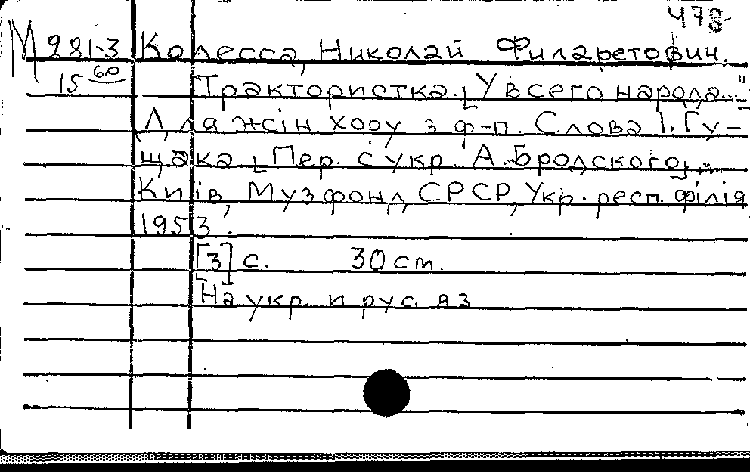 478
М 281-3 Колесса, Николай Филаретович.
15 60 Трактористка. [У всего народа..."]
Для жін. хору з ф-п. Слова І. Гу-
щака [Пер. с укр. А. Бродского].
Київ, Музфонд СРСР, Укр. респ. філія
1953.
[3] с. 30 см.
На укр. и рус. яз